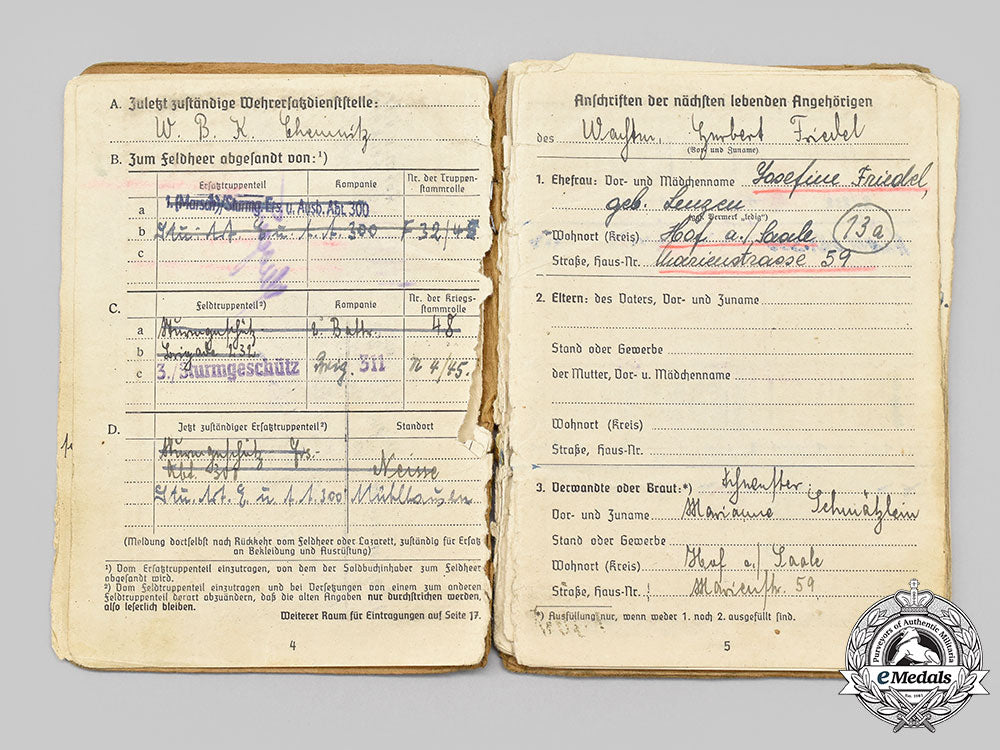 A. Zuletzt zuständige Wehrersatzdienststelle:
W. B. K. Chemnitz
B. Zum Feldheer abgesandt von:¹)
Ersatztruppenteil Kompanie Nr. der Truppen-
stammrolle
a 1. (Marsch)/Sturmg. Ers. u. Ausb. Abt. 300
b Stu. Art. E. u. A. A. 300 F 32/45
c
C. Feldtruppenteil²) Kompanie Nr. der Kriegs-
stammrolle
a Sturmgeschütz- 2. Battr. 48
b Brigade 232
c 3./Sturmgeschütz Brig. 311 N 4/45.
D. Jetzt zuständiger Ersatztruppenteil²) Standort
Sturmgeschütz Ers.
Abt. 300 Neisse
Stu. Art. E. u. A. A. 300 Mühlhausen
(Meldung dortselbst nach Rückkehr vom Feldheer oder Lazarett, zuständig für Ersatz
an Bekleidung und Ausrüstung)
¹) Vom Ersatztruppenteil einzutragen, von dem der Soldbuchinhaber zum Feldheer
abgesandt wird.
²) Vom Feldtruppenteil einzutragen und bei Versetzungen von einem zum anderen
Feldtruppenteil derart abzuändern, daß die alten Angaben nur durchstrichen werden,
also leserlich bleiben.
Weiterer Raum für Eintragungen auf Seite 17.
4
Anschriften der nächsten lebenden Angehörigen
des Wachtm. Herbert Friedel
(Vor- und Zuname)
1. Ehefrau: Vor- und Mädchenname Josefine Friedel
geb. Lenzen
(ggf. Vermerk „ledig")
Wohnort (Kreis) Hof a./Saale 13a
Straße, Haus-Nr. Marienstrasse 59
2. Eltern: des Vaters, Vor- und Zuname
Stand oder Gewerbe
der Mutter, Vor- u. Mädchenname
Wohnort (Kreis)
Straße, Haus-Nr.
3. Verwandte oder Braut:*) Schwester:
Vor- und Zuname Marianne Schmätzlein
Stand oder Gewerbe
Wohnort (Kreis) Hof a./Saale
Straße, Haus-Nr. Marienstr. 59
*) Ausfüllung nur, wenn weder 1. noch 2. ausgefüllt sind.
5
Purveyors of Authentic Militaria
eMedals